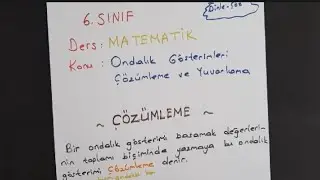 6. SINIF
Dinle-Sec
Ders: MATEMATİK
Konu: Ondalık Gösterimleri
Çözümleme ve Yuvarlama
~ ÇÖZÜMLEME ~
Bir ondalık gösterimi basamak değerleri-
nin toplamı biçiminde yazmaya bu ondalık
gösterimi Çözümleme denir.